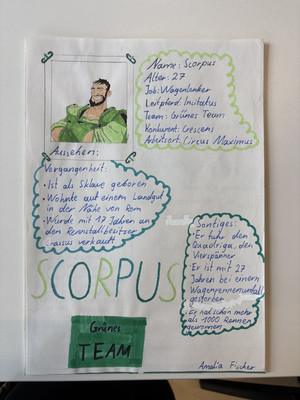 Name: Scorpus
Alter: 27
Job: Wagenlenker
Leitpferd: Incitatus
Team: Grünes Team
Konkurent: Crescens
Arbeitsort: Circus Maximus
Aussehen:
Vergangenheit:
• Ist als Sklave geboren
• Wohnte auf einem Landgut
in der Nähe von Rom
• Wurde mit 17 Jahren an
den Rennstallbesitzer
verkauft
Sontiges:
• Er fuhr den
Quadriga, den
Vierspänner
• Er ist mit 27
Jahren bei einem
Wagenrennenunfall
gestorben
• Er hat schon mehr
als 1000 Rennen
gewonnen
SCORPUS
Grünes
TEAM
Amelia Fischer